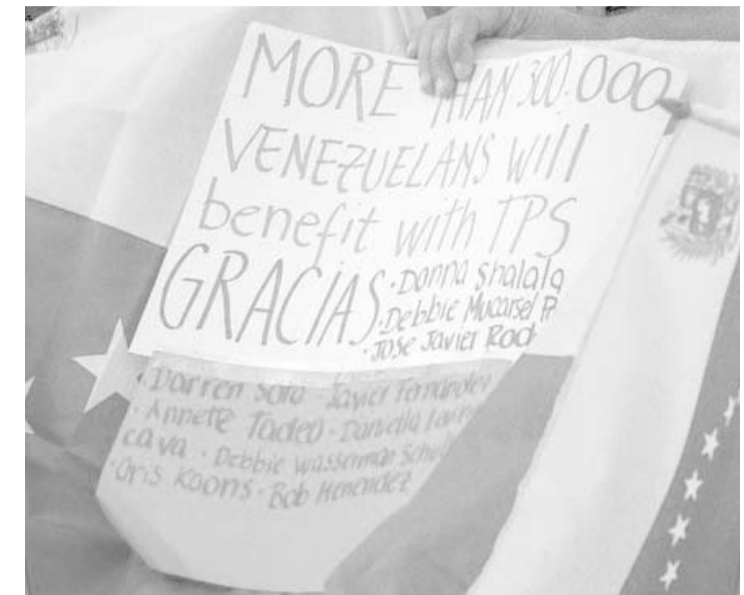 MORE THAN 300.000
VENEZUELANS WIll
benefit with TPS
GRACIAS
·Donna Shalala
·Debbie Mucarsel P
·JOSE JAVIER Rod
·Darren Soto ·Javier Fernandez
·Annette Tadeo ·Daniella
cava ·Debbie Wasserman Schul
·Cris Koons ·Bob Menendez